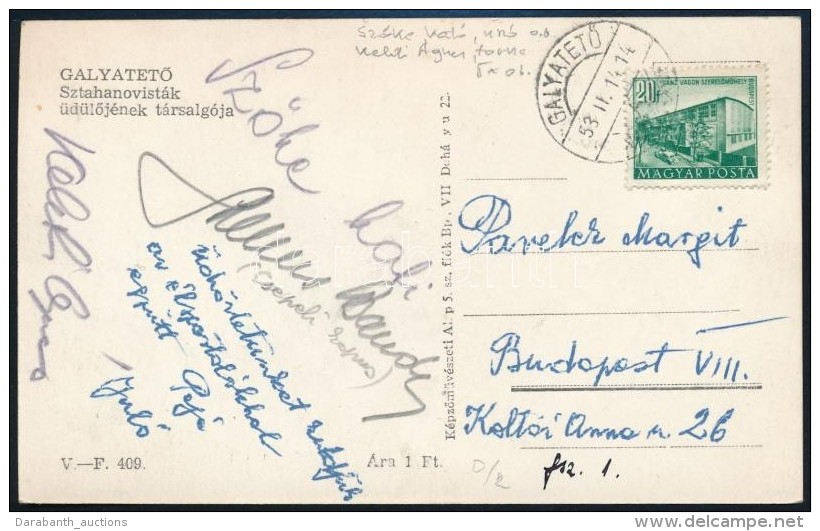 GALYATETŐ
Sztahanovisták
üdülőjének társalgója
Szőke Kató, úszó o.b.
Keleti Ágnes, torna
GALYATETŐ
53 II. 14. 14
20f
GANZ VAGON SZERELŐMŰHELY BUDAPEST
MAGYAR POSTA
Szőke Kati
Keleti Ágnes
Nemes
(csepeli
üdvözletünket küldjük
az élsportolókkal
együtt Papa
Gyuló
Képzőművészeti Alap 5. sz. fiók Bp. VII Dohány u 22.
Pavelek Margit
Budapest VIII.
Koltói Anna u. 26
fsz. 1.
V.—F. 409.
Ára 1 Ft.
D/2
Darabanth_auctions
delcampe.net